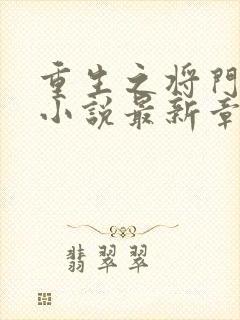 重生之将門
小説最新章
翡翠翠